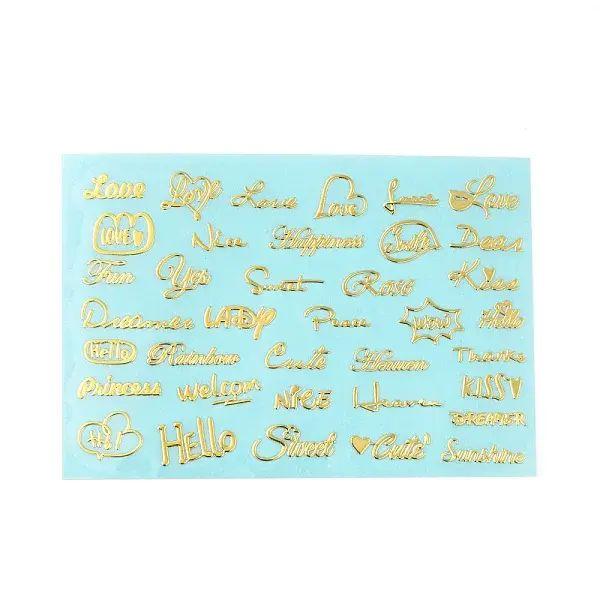 Love Love Love Love Love Love
LOVE Nice Happiness Smile Dear
Fun Yes Sweet Rose Kiss
Dreamer LADY Peace WOW! Hello
Hello Rainbow Cute Heaven Thanks
Princess welcome NiCE Heaven KISS
Hi! HeLLo Sweet Cute DREAMER
Sunshine